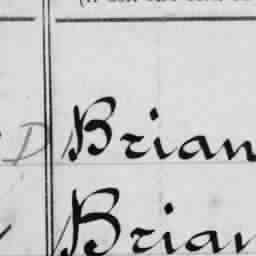 D Brian
Brian